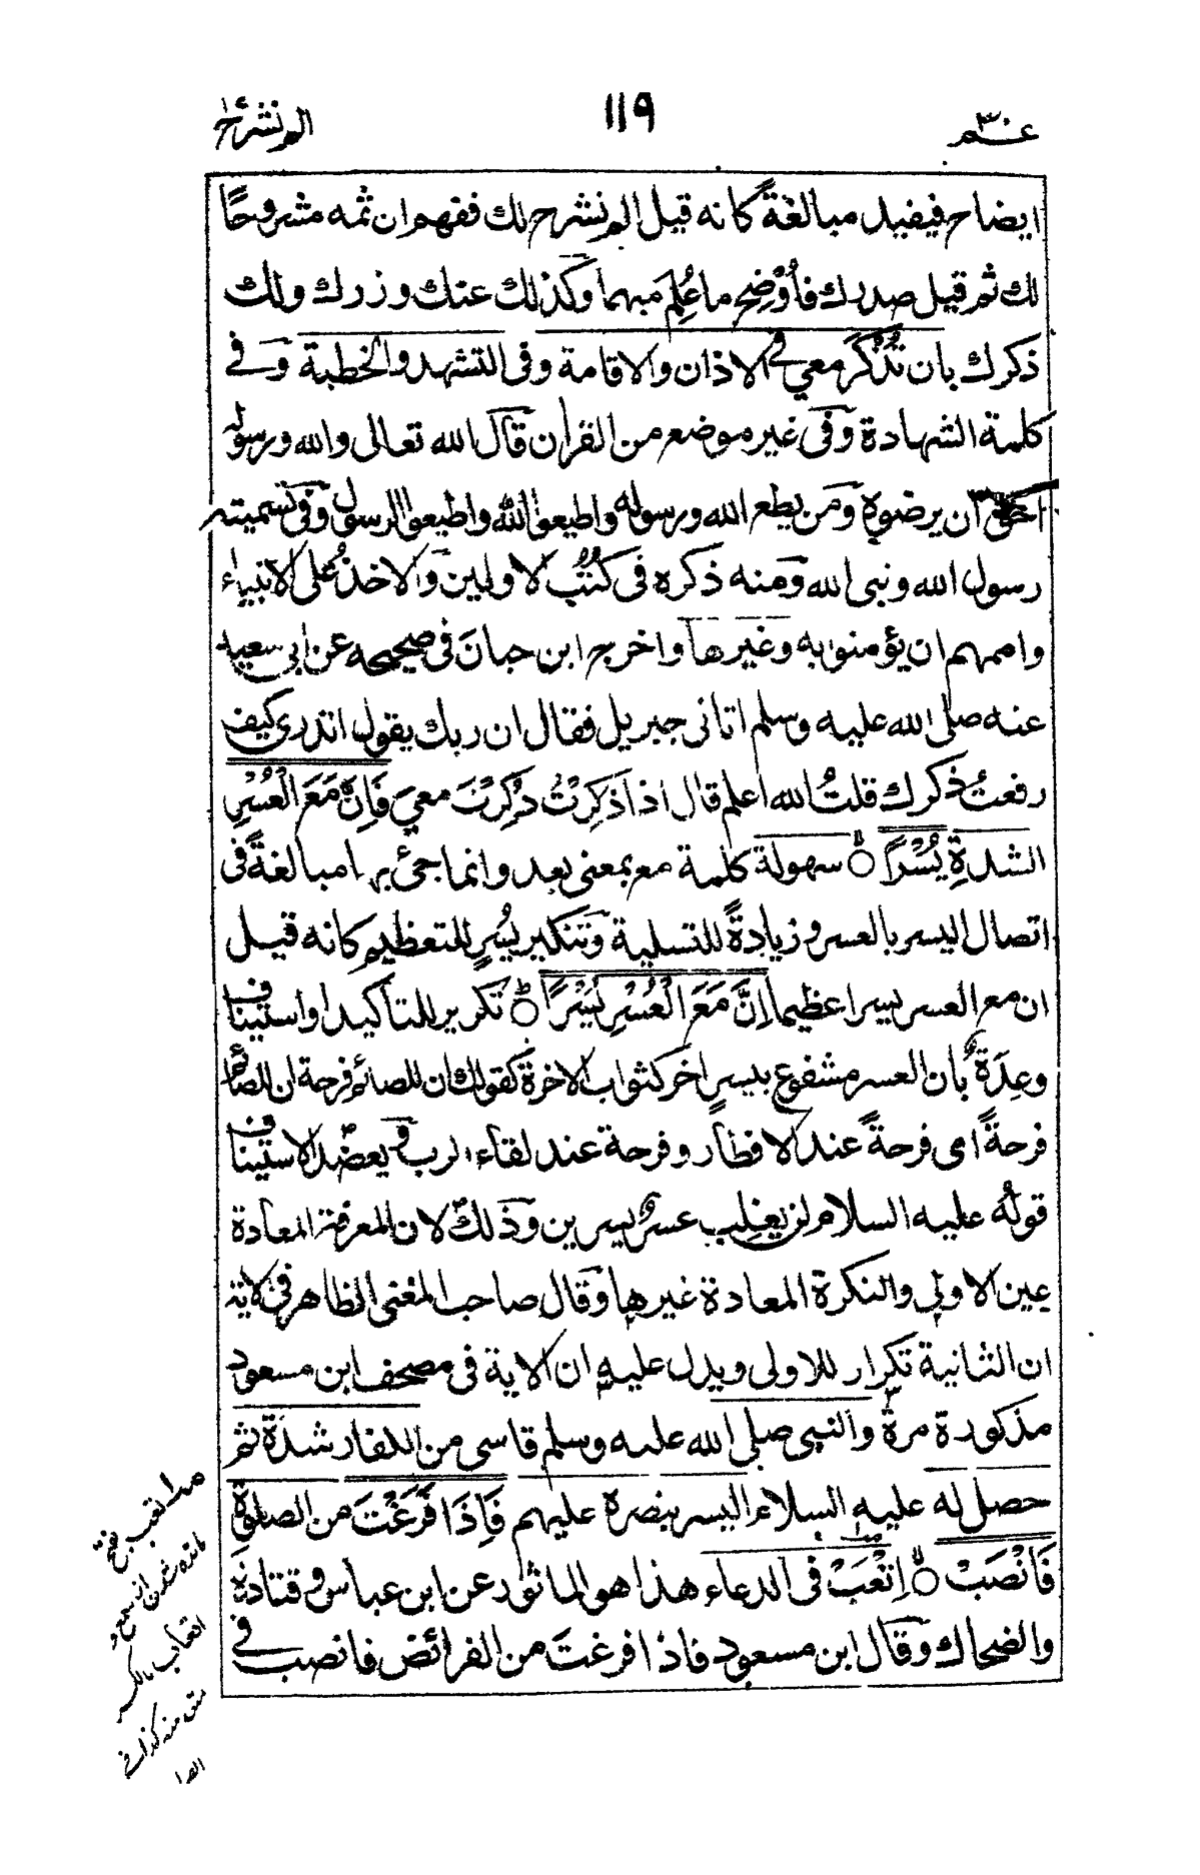 عم ٣٠
١١٩
الم نشرح
ايضاح فيفيد مبالغةً كانه قيل الم نشرح لك ففهم ان ثمه مشروحًا
لك ثم قيل صدرك فأُوْضِح ما عُلِمَ مبهما وكذلك عنك وزرك ولك
ذكرك بان تُذْكَرَ معي في الاذان والاقامة وفى التشهد والخطبة وفے
كلمة الشهادة وفى غير موضع من القران قال الله تعالى والله ورسوله
احق ان يرضوه ومن يطع الله ورسوله واطيعوا الله واطيعوا الرسول وفى تسميته
رسول الله ونبى الله ومنه ذكره فى كُتُب الاولين والاخذُ على الانبياء
واممهم ان يؤمنوا به وغيرها واخرج ابن حبان فى صحيحه عن ابى سعيد
عنه صلى الله عليه وسلم اتانى جبريل فقال ان ربك يقول اتدرى كيف
رفعتُ ذكرك قلتُ الله اعلم قال اذا ذُكِرْتُ ذُكِرْتَ معىَ فَاِنَّ مَعَ الْعُسْرِ
الشدةِ يُسْرًا ۝ سهولة كلمة مع بمعنى بعد وانما جئ بها مبالغةً فى
اتصال اليسر بالعسر وزيادةً للتسلية وتنكير يُسْرٍ للتعظيم كانه قيل
ان مع العسر يسرا عظيما اِنَّ مَعَ الْعُسْرِ يُسْرًا ۝ تكرير للتأكيد او استيناف
وعِدَةٌ بان العسر مشفوع بيسرٍ اخر كثواب الاخرة كقولك ان للصائم فرحة ان للصائم
فرحةً اى فرحةً عند الافطار وفرحة عند لقاء الرب ويعضد الاستيناف
قولُه عليه السلام لن يغلِب عسرٌ يسرين وذلك لان المعرفة المعادة
عين الاولى والنكرة المعادة غيرها وقال صاحب المغنى الظاهر فى الاية
ان الثانية تكرار للاولى ويدل عليه ان الاية فى مصحف ابن مسعود
مذكورة مرة والنبى صلى الله عليه وسلم قاسى من الكفار شدة ثم
حصل له عليه السلام اليسر بنصره عليهم فَاِذَا فَرَغْتَ من الصلوة
فَانْصَبْ ۝ اِتْعَبْ فى الدعاء هذا هو الماثور عن ابن عباس وقتادة
والضحاك وقال ابن مسعود فاذا فرغتَ من الفرائض فانصب فى